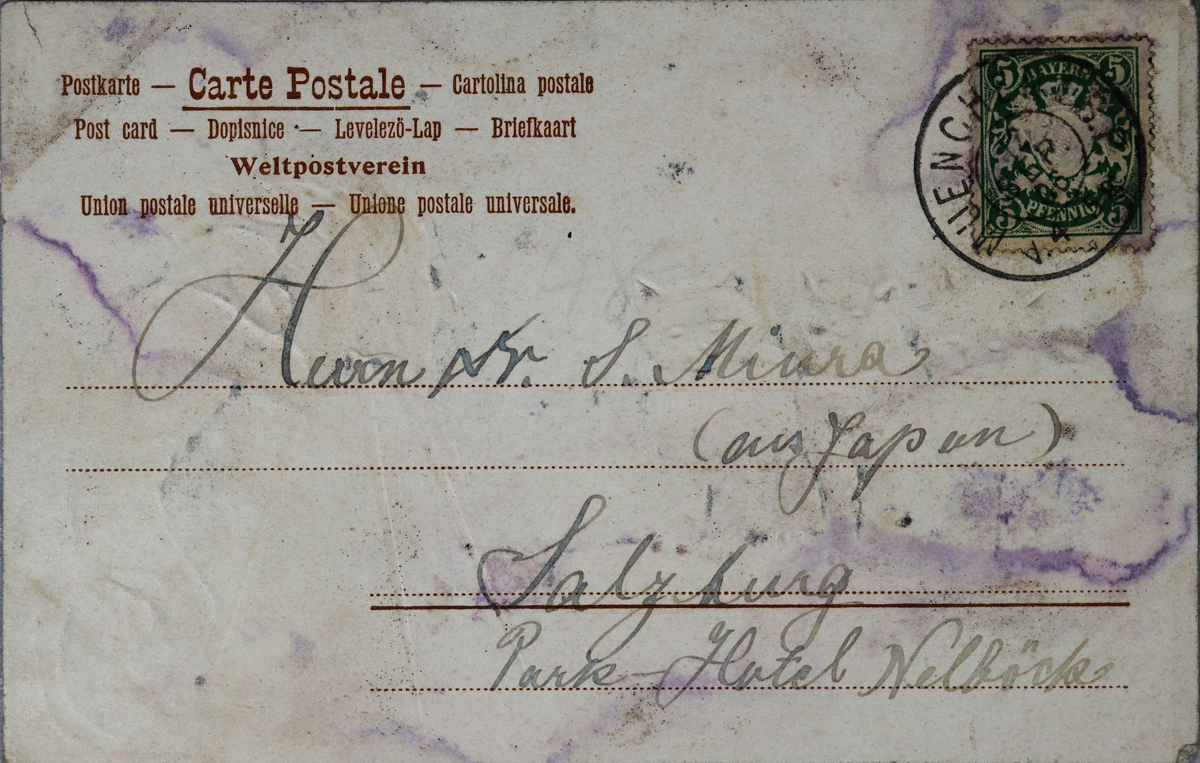 Postkarte — Carte Postale — Cartolina postale
Post card — Dopisnice — Levelező-Lap — Briefkaart
Weltpostverein
Union postale universelle — Unione postale universale.
5 BAYERN 5
5 PFENNIG 5
MUENCHEN
Herrn Dr. S. Miura
(aus Japan)
Salzburg
Park-Hotel Nelböck